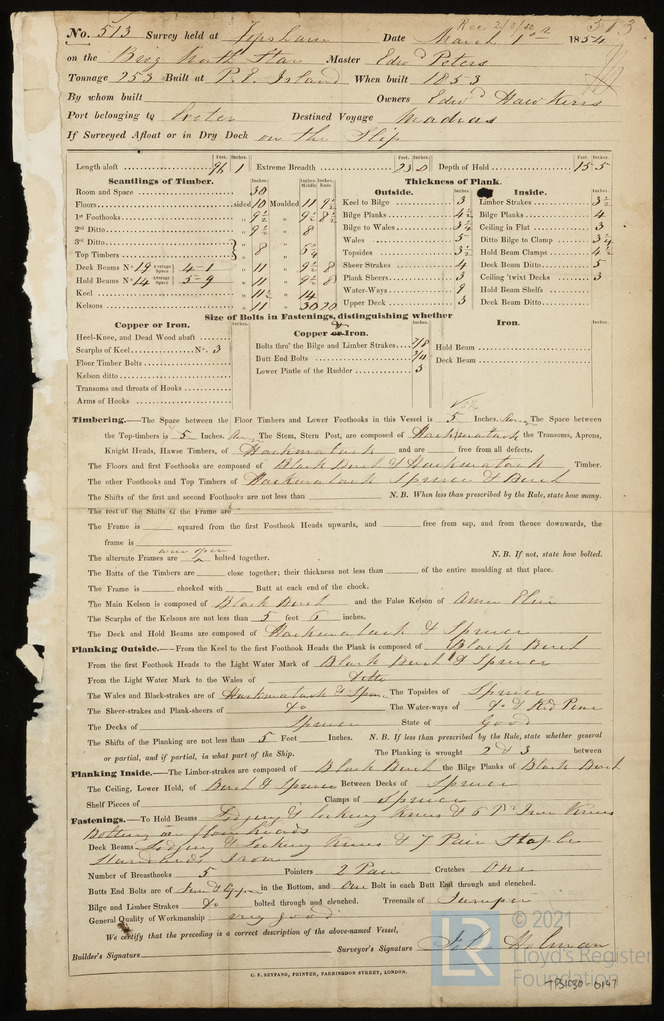 Rec 2/3/50 513
No. 513 Survey held at Topsham Date March 1st 1854
on the Brig North Star Master Edwd Peters
Tonnage 253 Built at P. E. Island When built 1853
By whom built Owners Edwd Hawkins
Port belonging to Exeter Destined Voyage Madras
If Surveyed Afloat or in Dry Dock on the Slip
Feet. Inches. Feet. Inches. Feet. Inches.
Length aloft 96 1 Extreme Breadth 23 0 Depth of Hold 15 5
Scantlings of Timber. Thickness of Plank.
Inches. Inches. Middle Inches. Ends Outside. Inches. Inside. Inches.
Room and Space 30 Keel to Bilge 3 Limber Strakes 3 1/2
Floors sided 10 Moulded 11 9 1/2 Bilge Planks 4 1/2 Bilge Planks 4
1st Foothooks " 9 1/2 " 9 1/2 8 1/2 Bilge to Wales 3 1/4 Ceiling in Flat 3
2nd Ditto " 9 1/2 " 8 Wales 5 Ditto Bilge to Clamp 3 1/4
3rd Ditto Topsides 3 1/2 Hold Beam Clamps 4 1/2
Top Timbers " 8 " 5 1/4 Sheer Strakes 4 Deck Beam Ditto 5
Deck Beams No. 19 Average Space 4-1 " 11 " 9 1/2 8 Plank Sheers 3 Ceiling 'twixt Decks 3
Hold Beams No. 14 Average Space 5-9 " 11 " 9 1/2 8 Water-Ways 9 Hold Beam Shelfs
Keel " 11 1/2 " 14 Upper Deck 3 Deck Beam Ditto
Kelsons " 11 " 30 20
Size of Bolts in Fastenings, distinguishing whether
Copper or Iron. Inches. Copper or Iron. Inches. Iron. Inches.
Heel-Knee, and Dead Wood abaft Bolts thro' the Bilge and Limber Strakes 7/8 Hold Beam
Scarphs of Keel No. 3 Butt End Bolts 3/4 Deck Beam
Floor Timber Bolts Lower Pintle of the Rudder 3
Kelson ditto
Transoms and throats of Hooks
Arms of Hooks
Timbering.—The Space between the Floor Timbers and Lower Foothooks in this Vessel is 5 Inches. The Space between
the Top-timbers is 5 Inches. The Stem, Stern Post, are composed of Hackmatack the Transoms, Aprons,
Knight Heads, Hawse Timbers, of Hackmatack and are free from all defects.
The Floors and first Foothooks are composed of Black Birch & Hackmatack Timber.
The other Foothooks and Top Timbers of Hackmatack Spruce & Birch
The Shifts of the first and second Foothooks are not less than N.B. When less than prescribed by the Rule, state how many.
The rest of the Shifts of the Frame are
The Frame is squared from the first Foothook Heads upwards, and free from sap, and from thence downwards, the
frame is
The alternate Frames are bolted together. N.B. If not, state how bolted.
The Butts of the Timbers are close together; their thickness not less than of the entire moulding at that place.
The Frame is chocked with Butt at each end of the chock.
The Main Kelson is composed of Black Birch and the False Kelson of Amer Elm
The Scarphs of the Kelsons are not less than 5 feet 6 inches.
The Deck and Hold Beams are composed of Hackmatack & Spruce
Planking Outside.—From the Keel to the first Foothook Heads the Plank is composed of Black Birch
From the first Foothook Heads to the Light Water Mark of Black Birch & Spruce
From the Light Water Mark to the Wales of Ditto
The Wales and Black-strakes are of Hackmatack & Spruce The Topsides of Spruce
The Sheer-strakes and Plank-sheers of Do The Water-ways of Do & Red Pine
The Decks of Spruce State of Good
The Shifts of the Planking are not less than 5 Feet Inches. N.B. If less than prescribed by the Rule, state whether general
or partial, and if partial, in what part of the Ship. The Planking is wrought 2 & 3 between
Planking Inside.—The Limber-strakes are composed of Black Birch the Bilge Planks of Black Birch
The Ceiling, Lower Hold, of Birch & Spruce Between Decks of Spruce
Shelf Pieces of Clamps of Spruce
Fastenings.—To Hold Beams Lodging & Looking Knees & 6 Pr Iron Knees
Bolting on floor heads
Deck Beams Lodging & Looking Knees & 7 Pair Staple
Standards Iron
Number of Breasthooks 5 Pointers 2 Pair Crutches One
Butts End Bolts are of Iron & Copper in the Bottom, and One Bolt in each Butt End through and clenched.
Bilge and Limber Strakes Do bolted through and clenched. Treenails of Juniper
General Quality of Workmanship very good
We certify that the preceding is a correct description of the above-named Vessel,
Builder's Signature Surveyor's Signature John Holman
C. F. SEYFANG, PRINTER, FARRINGDON STREET, LONDON.
LR © 2021
Lloyd's Register
Foundation
TPS1030-0147